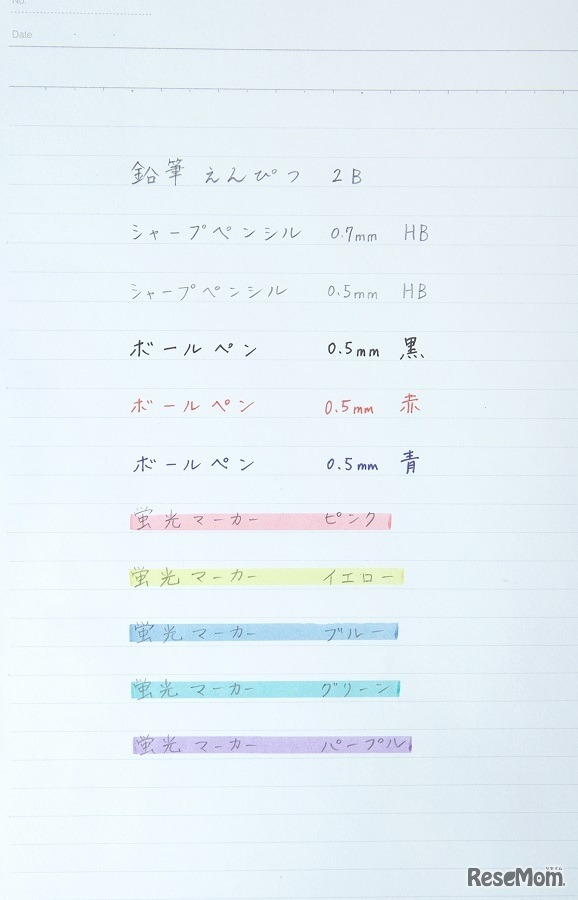 No.
Date
鉛筆 えんぴつ 2B
シャープペンシル 0.7mm HB
シャープペンシル 0.5mm HB
ボールペン 0.5mm 黒
ボールペン 0.5mm 赤
ボールペン 0.5mm 青
蛍光マーカー ピンク
蛍光マーカー イエロー
蛍光マーカー ブルー
蛍光マーカー グリーン
蛍光マーカー パープル
リセマム
ReseMom.